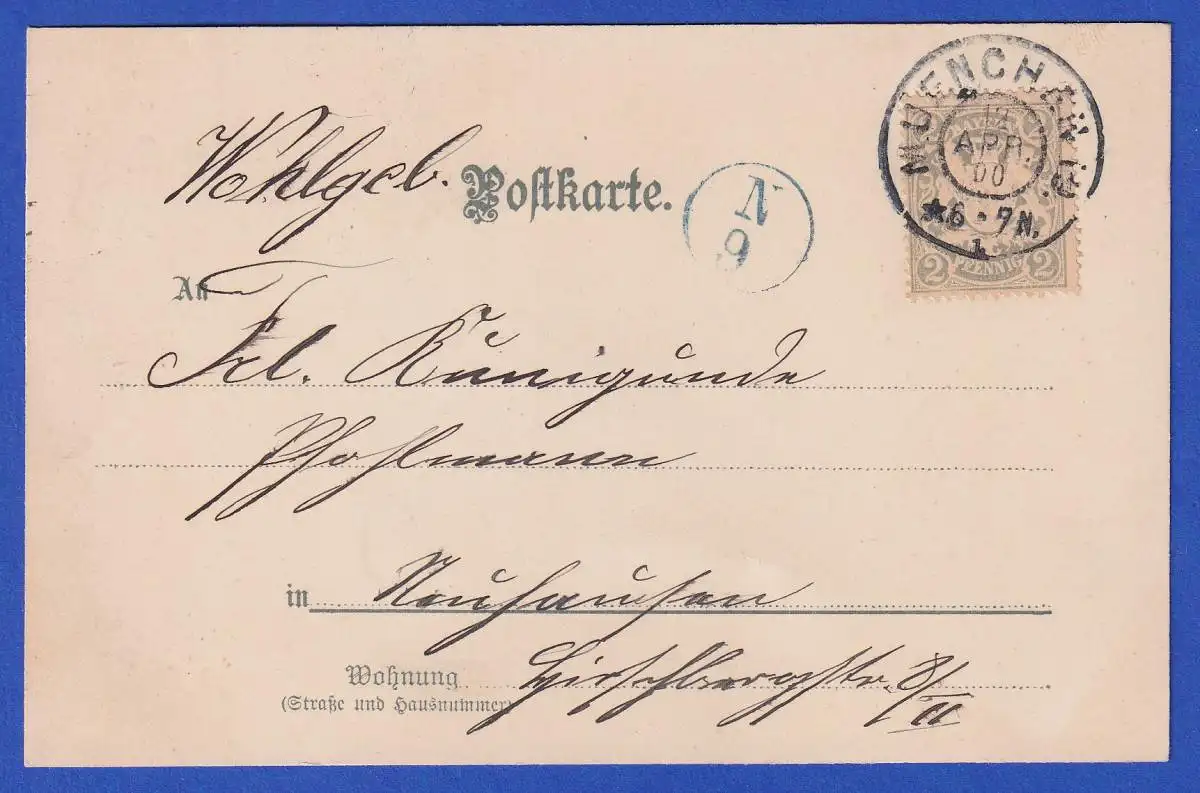 Wohlgeb.
Postkarte.
N
6
MUENCHEN
12
APR.
00
★6-7N.
1
2 PFENNIG 2
An
Frl. Kunigunde
Pfohlmann
in Neuhausen
Wohnung Hirschbergstr. 8/II
(Straße und Hausnummer)